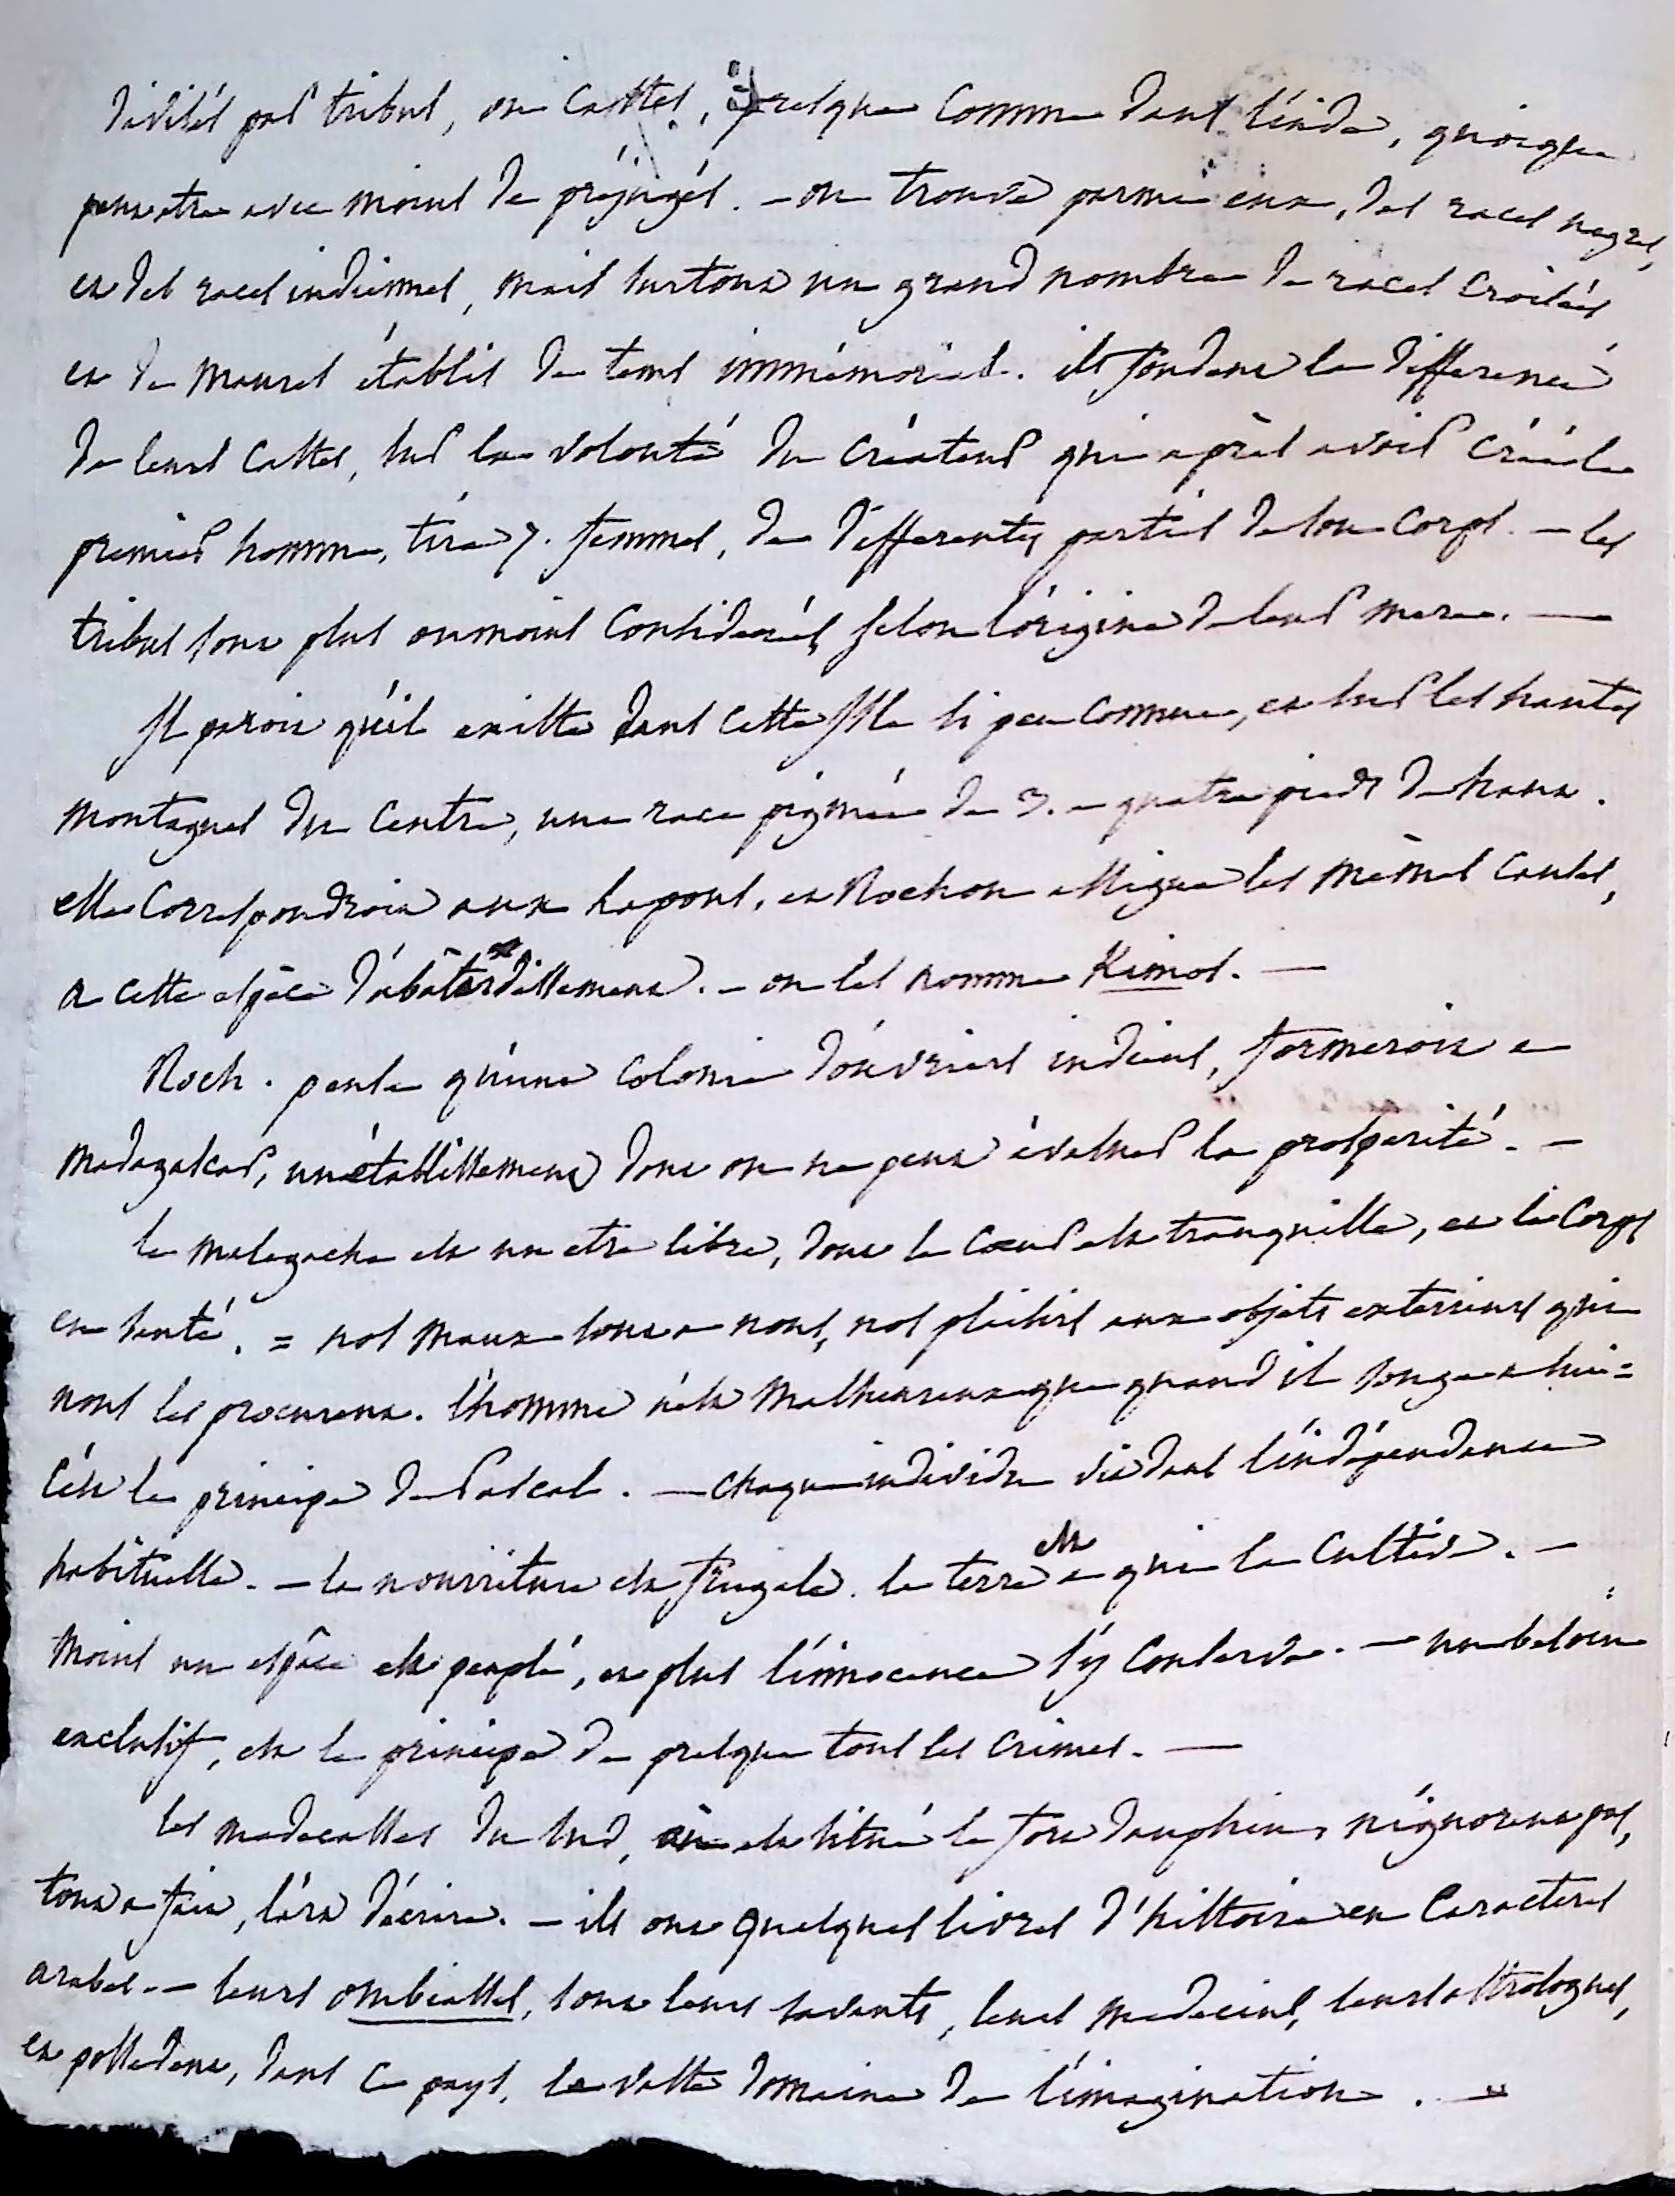 divisés par tribus, ou castes, presque comme dans l'inde, quoique
peutetre avec moins de préjugés. - on trouve parmi eux, des races negres,
et des races indiennes, mais surtout un grand nombre de races croisées
et de maures établis de tems immémorial. ils fondent la difference
de leurs castes, sur la volonté du créateur qui après avoir créé le
premier homme, tira 7. femmes, de differentes parties de son corps. - les
tribus sont plus ou moins considerées selon l'origine de leur mere. —
Il paroit qu'il existe dans cette Isle si peu connue, et sur les hautes
montagnes du centre, une race pigmée de 3. a quatre pieds de haut.
elle correspondroit aux lapons, et Rochon assigne les mêmes causes,
a cette espèce d'abâtardissement. - on les nomme Kimos. —
Roch. pense qu'une colonie d'ouvriers indiens, formeroit a
Madagascar, un établissement dont on ne peut évaluer la prosperité. -
le malegache est un etre libre, dont le coeur est tranquille, et le corps
en santé. = nos maux sont a nous, nos plaisirs aux objets exterieurs qui
nous les procurent. l'homme n'est malheureux que quand il songe a lui =
c'est le principe de Pascal. — chaque individu vit dans l'indépendance
habituelle. - la nourriture est frugale. la terre est a qui la cultive. -
moins un espace est peuplé, et plus l'innocence s'y conserve. — un besoin
exclusif, est le principe de presque tous les crimes. —
les madecasses du sud, où est situé le fort dauphin, n'ignorent pas,
tout a fait, l'art d'écrire. - ils ont quelques livres d'histoire en caracteres
arabes. - leurs ombiasses, sont leurs savants, leurs medecins, leurs astrologues,
et possedent, dans ce pays, le vaste domaine de l'imagination. -